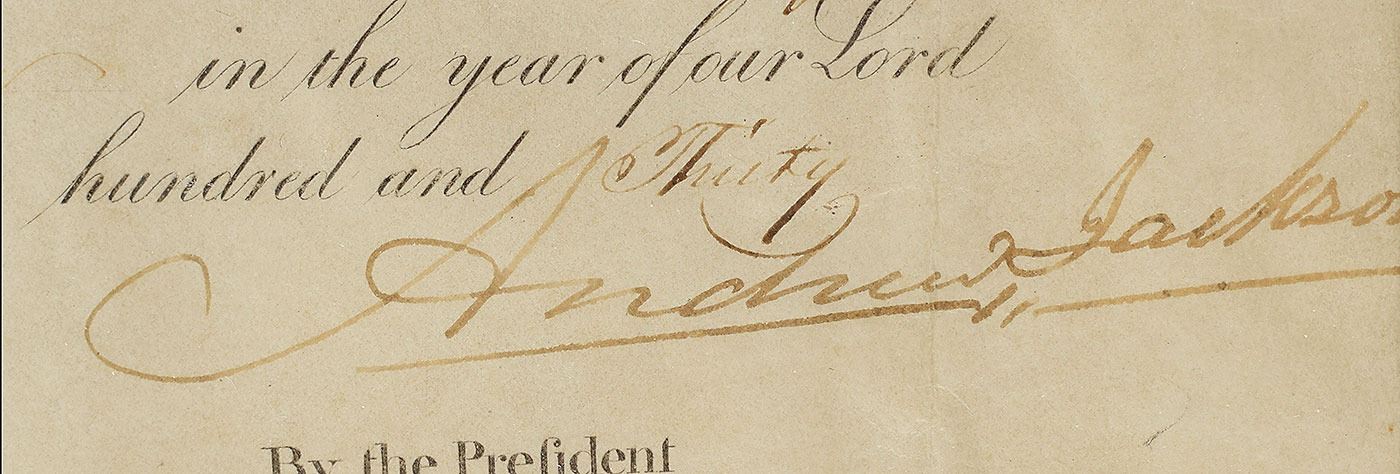 in the year of our Lord
hundred and Thirty
Andrew Jackso
By the Preſident